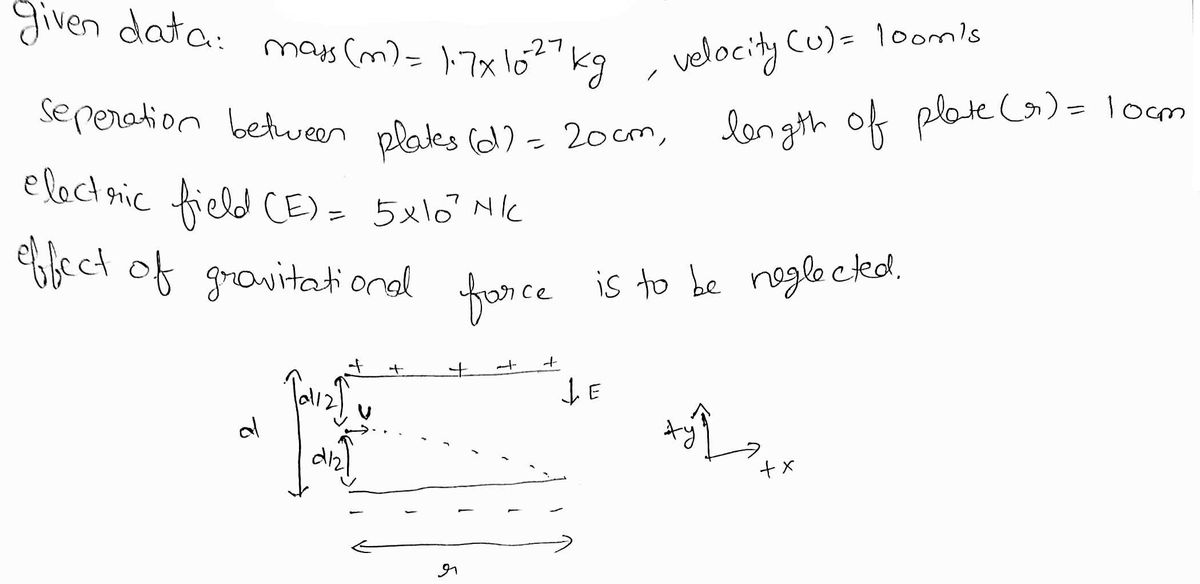 given data: mass (m) = 1.7x10^-27 kg , velocity (u) = 100m/s
seperation between plates (d) = 20cm, length of plate (r) = 10cm
electric field (E) = 5x10^7 N/C
effect of gravitational force is to be neglected.
+ + + + +
d/2
↓ E
U
d
d/2
+y
+x
- - - - -
r